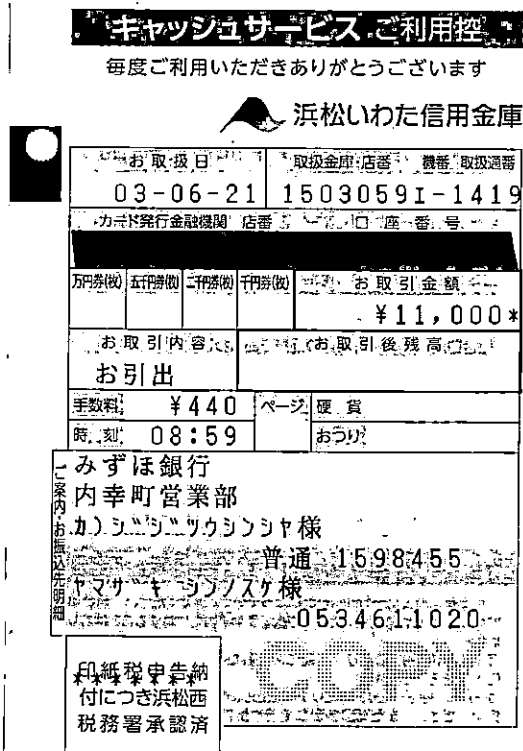 キャッシュサービス ご利用控
毎度ご利用いただきありがとうございます
浜松いわた信用金庫
お取扱日 取扱金庫・店番 機番 取扱通番
03-06-21 1503059I-1419
カード発行金融機関 店番 口座番号
万円券(枚) 五千円券(枚) 二千円券(枚) 千円券(枚) お取引金額
¥11,000*
お取引内容 お取引後残高
お引出
手数料 ¥440 ページ 硬貨
時刻 08:59 おつり
ご案内・お振込先明細
みずほ銀行
内幸町営業部
カ)ジジツウシンシヤ様
普通 1598455
ヤマザキ シンノスケ様
0534611020
印紙税申告納
*******
付につき浜松西
税務署承認済
COPY